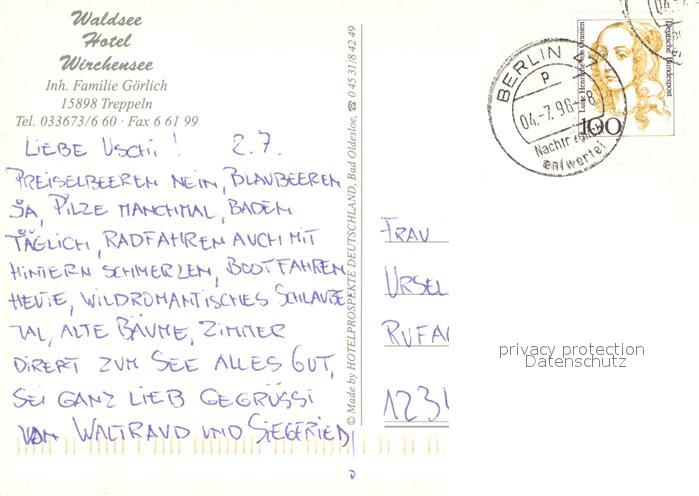 Waldsee
Hotel
Wirchensee
Inh. Familie Görlich
15898 Treppeln
Tel. 033673/6 60 · Fax 6 61 99
LIEBE USCHI! 2.7.
PREISELBEEREN NEIN, BLAUBEEREN
JA, PILZE MANCHMAL, BADEN
TÄGLICH, RADFAHREN AUCH MIT
HINTERN SCHMERZEN, BOOTFAHREN
HEUTE, WILDROMANTISCHES SCHLAUBE-
TAL, ALTE BÄUME, ZIMMER
DIREKT ZUM SEE ALLES GUT,
SEI GANZ LIEB GEGRÜSST
VON WALTRAUD UND SIEGFRIED
© Made by HOTELPROSPEKTE DEUTSCHLAND, Bad Oldesloe, ☎ 0 45 31/8 42 49
BERLIN
P
04.-7.98-8
Nachträglich
entwertet
Luise Henriette von Oranien
Deutsche Bundespost
100
FRAU
URSEL
RUFA
123
privacy protection
Datenschutz